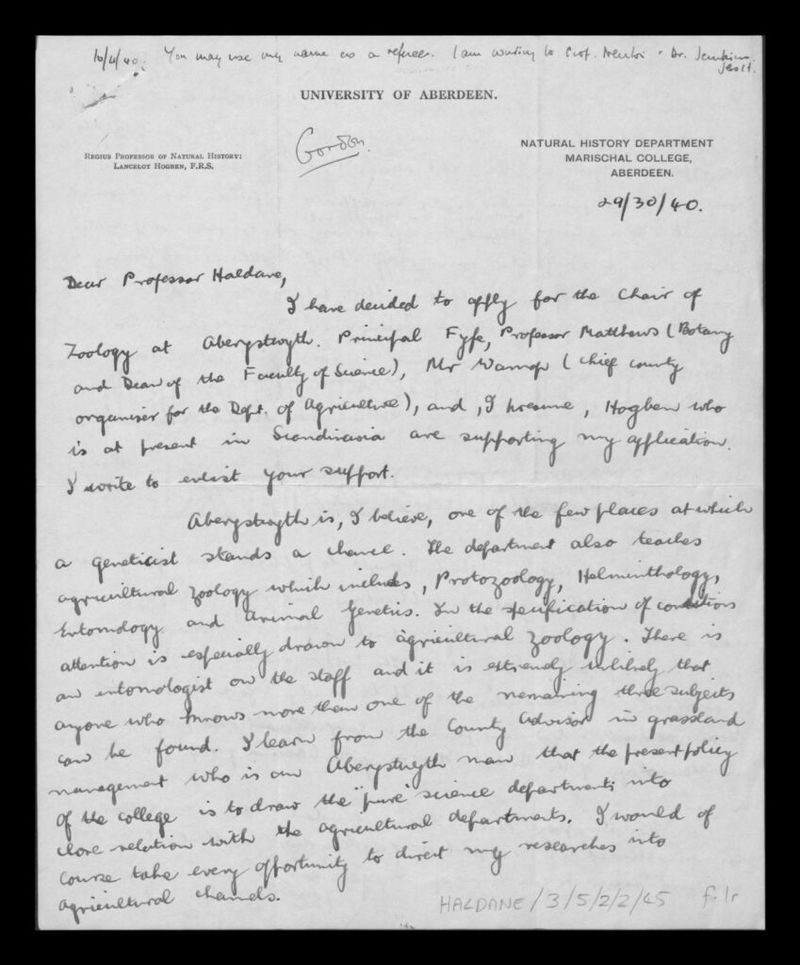 10/4/40. You may use my name as a referee. I am writing to Prof. & Dr. Jenkins.
UNIVERSITY OF ABERDEEN.
Gordon.
REGIUS PROFESSOR OF NATURAL HISTORY:
LANCELOT HOGBEN, F.R.S.
NATURAL HISTORY DEPARTMENT
MARISCHAL COLLEGE,
ABERDEEN.
29/30/40.
Dear Professor Haldane,
I have decided to apply for the Chair of
Zoology at Aberystwyth. Principal Fyfe, Professor Matthews (Botany
and Dean of the Faculty of Science), Mr (Chief county
organiser for the Dept. of Agriculture), and, I presume, Hogben who
is at present in Scandinavia are supporting my application.
I write to enlist your support.
Aberystwyth is, I believe, one of the few places at which
a geneticist stands a chance. The department also teaches
agricultural zoology which includes, Protozoology, Helminthology,
Entomology and Animal Genetics. In the specification of conditions
attention is especially drawn to agricultural zoology. There is
an entomologist on the staff and it is extremely unlikely that
anyone who knows more than one of the remaining three subjects
can be found. I learn from the County Advisor in grassland
management who is an Aberystwyth man that the present policy
of the college is to draw the "pure" science departments into
close relation with the agricultural departments. I would of
course take every opportunity to direct my researches into
agricultural channels.
HALDANE/3/5/2/2/45 f.1r